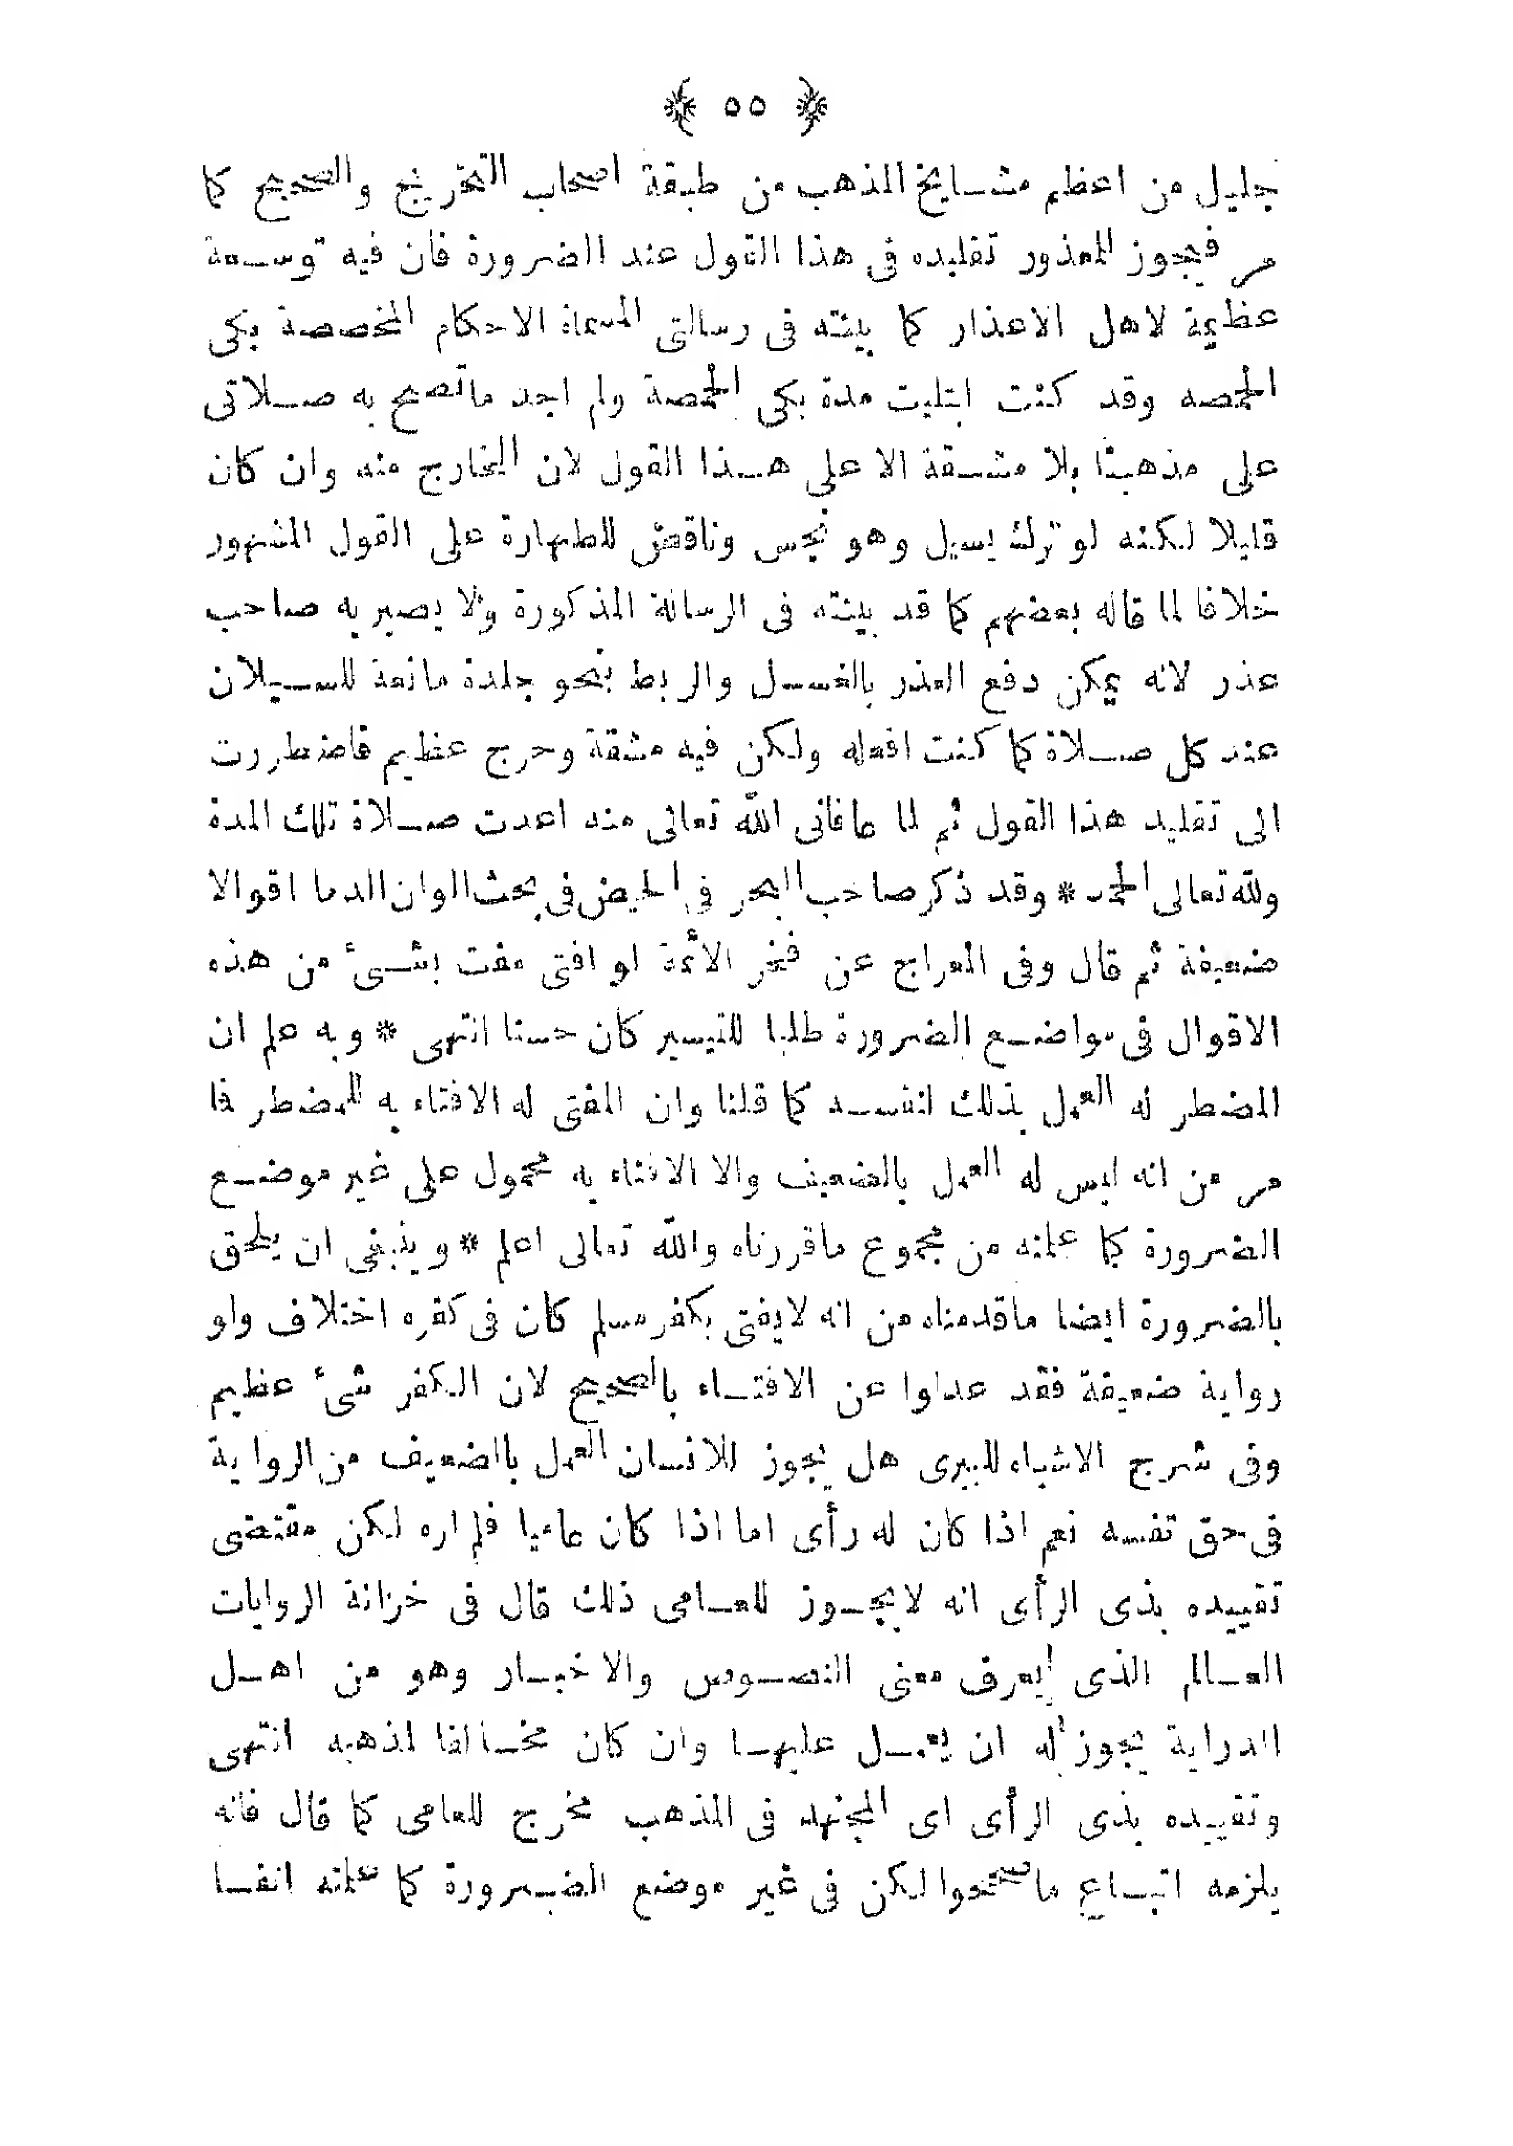 ﴿ ٥٥ ﴾
جليل من اعظم مشايخ المذهب من طبقة اصحاب التخريج والتصحيح كما
مر فيجوز للمعذور تقليده فى هذا القول عند الضرورة فان فيه توسعة
عظيمة لاهل الاعذار كما بينته فى رسالتى المسماة الاحكام المخصصة بكى
الحمصه وقد كنت ابتليت مدة بكى الحمصة ولم اجد ماتصح به صلاتى
على مذهبنا بلا مشقة الا على هذا القول لان الخارج منه وان كان
قليلا لكنه لو ترك يسيل وهو نجس وناقض للطهارة على القول المشهور
خلافا لما قاله بعضهم كما قد بينته فى الرسالة المذكورة ولا يصير به صاحب
عذر لانه يمكن دفع العذر بالغسل والربط بنحو جلدة مانعة للسيلان
عند كل صلاة كما كنت افعله ولكن فيه مشقة وحرج عظيم فاضطررت
الى تقليد هذا القول ثم لما عافانى الله تعالى منه اعدت صلاة تلك المدة
ولله تعالى الحمد * وقد ذكر صاحب البحر فى الحيض فى بحث الوان الدما اقوالا
ضعيفة ثم قال وفى المعراج عن فخر الائمة لو افتى مفت بشئ من هذه
الاقوال فى مواضع الضرورة طلبا للتيسير كان حسنا انتهى * وبه علم ان
المضطر له العمل بذلك لنفسه كما قلنا وان المفتى له الافتاء به للمضطر فا
مر من انه ليس له العمل بالضعيف والا الافتاء به محمول على غير موضع
الضرورة كما علمته من مجموع ماقررناه والله تعالى اعلم * وينبغى ان يلحق
بالضرورة ايضا ماقدمناه من انه لايفتى بكفر مسلم كان فى كفره اختلاف ولو
رواية ضعيفة فقد عدلوا عن الافتاء بالصحيح لان الكفر شئ عظيم
وفى شرح الاشباه للبيرى هل يجوز للانسان العمل بالضعيف من الرواية
فى حق نفسه نعم اذا كان له رأى اما اذا كان عاميا فلم اره لكن مقتضى
تقييده بذى الرأى انه لايجوز للعامى ذلك قال فى خزانة الروايات
العالم الذى يعرف معنى النصوص والاخبار وهو من اهل
الدراية يجوز له ان يعمل عليها وان كان مخالفا لمذهبه انتهى
وتقييده بذى الرأى اى المجتهد فى المذهب مخرج للعامى كما قال فانه
يلزمه اتباع ماصححوا لكن فى غير موضع الضرورة كما علمته انفا